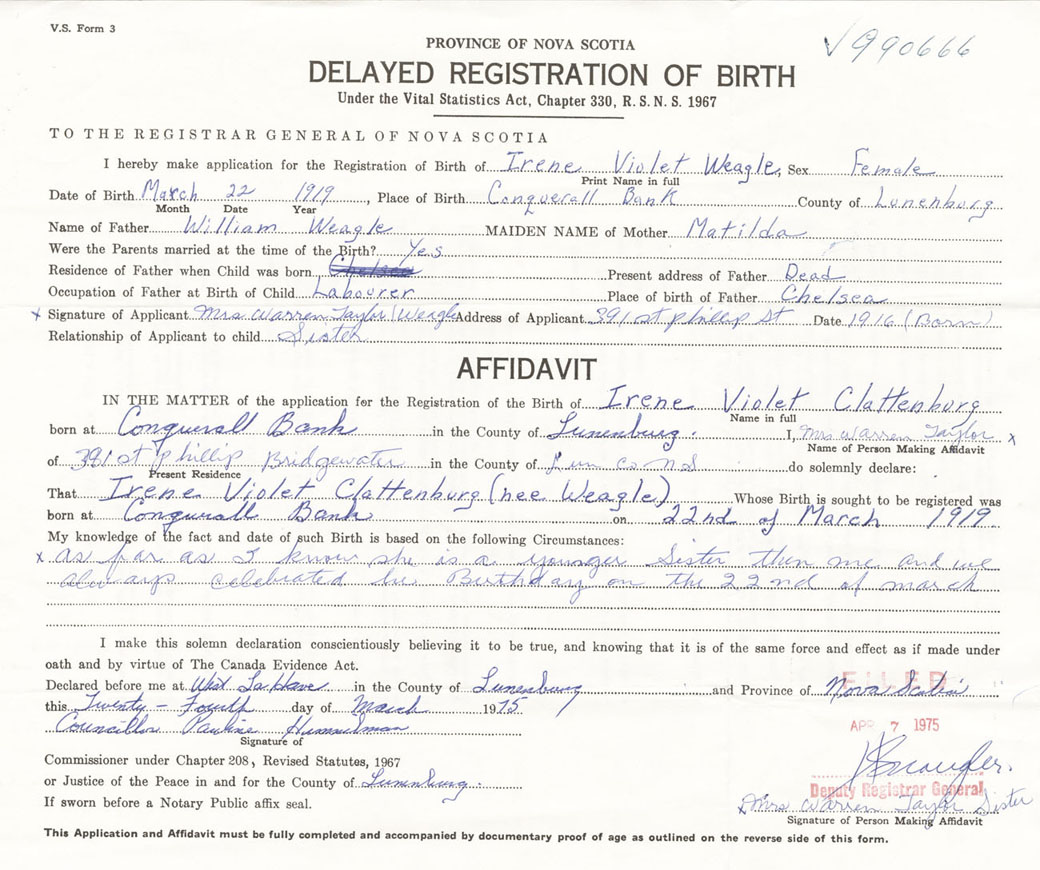 V.S. Form 3
990666
PROVINCE OF NOVA SCOTIA
DELAYED REGISTRATION OF BIRTH
Under the Vital Statistics Act, Chapter 330, R.S.N.S. 1967
TO THE REGISTRAR GENERAL OF NOVA SCOTIA
I hereby make application for the Registration of Birth of Irene Violet Weagle, Sex Female
Print Name in full
Date of Birth March 22 1919, Place of Birth Conquerall Bank County of Lunenburg
Month Date Year
Name of Father William Weagle MAIDEN NAME of Mother Matilda
Were the Parents married at the time of the Birth? Yes
Residence of Father when Child was born Chelsea Present address of Father Dead
Occupation of Father at Birth of Child Labourer Place of birth of Father Chelsea
x Signature of Applicant Mrs Warren Taylor/Weagle Address of Applicant 391 st phillip St Date 1916 (Born)
Relationship of Applicant to child Sister
AFFIDAVIT
IN THE MATTER of the application for the Registration of the Birth of Irene Violet Clattenburg
Name in full
born at Conquerall Bank in the County of Lunenburg. I, Mrs Warren Taylor x
Name of Person Making Affidavit
of 391 st phillip Bridgewater in the County of Lun Co N S do solemnly declare:
Present Residence
That Irene Violet Clattenburg (nee Weagle) Whose Birth is sought to be registered was
born at Conquerall Bank on 22nd of March 1919
My knowledge of the fact and date of such Birth is based on the following Circumstances:
x as far as I know she is a younger Sister then me and we
always celebrated the Birthday on the 22nd of march
I make this solemn declaration conscientiously believing it to be true, and knowing that it is of the same force and effect as if made under
oath and by virtue of The Canada Evidence Act.
Declared before me at West LaHave in the County of Lunenburg and Province of Nova Scotia
FILED
this Twenty-Fourth day of March 1975
APR 7 1975
Councillor Pauline Himmelman
Signature of
Commissioner under Chapter 208, Revised Statutes, 1967
or Justice of the Peace in and for the County of Lunenburg.
Deputy Registrar General
If sworn before a Notary Public affix seal.
x Mrs Warren Taylor Sister
Signature of Person Making Affidavit
This Application and Affidavit must be fully completed and accompanied by documentary proof of age as outlined on the reverse side of this form.